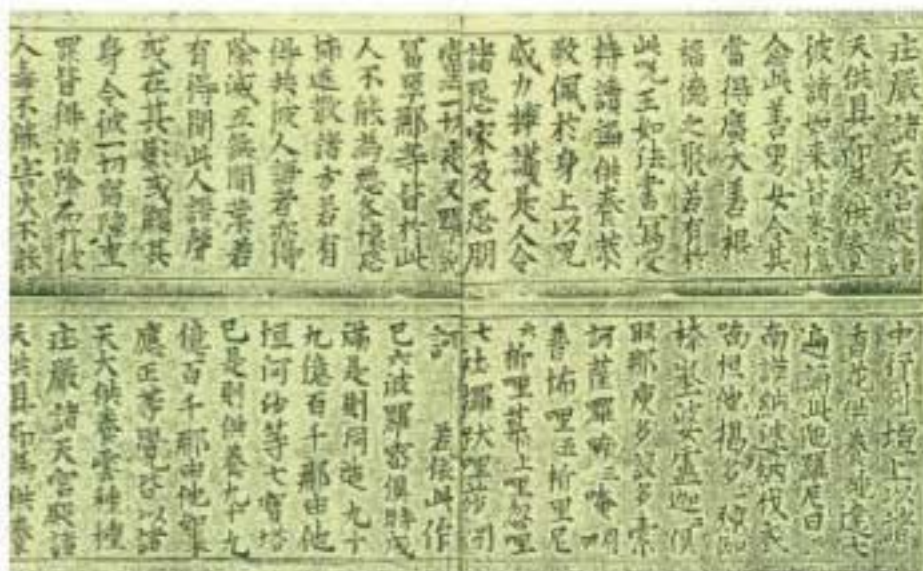 莊嚴諸天宮殿諸
天供具而爲供養
彼諸如來皆來憶
念此善男女令其
當得廣大善根
福德之聚若有於
此呪王如法書寫受
持讀誦供養恭
敬佩於身上以呪
威力擁護是人令
諸怨家及怨朋
黨一切夜叉羅剎
富單那等皆於此
人不能為惡各懷恐
怖逃散諸方若有
得共彼人語者亦得
除滅五無間業若
有得聞此人語聲
或在其影或觸其
身令彼一切宿障重
罪皆得消除不被
人毒不能害火不能
中行列壇上以諸
香花供養旋遶七
遍誦此陀羅尼曰
南謨納婆納伐底
喃怛他揭多
捺地婆盧迦俱
胝那庾多設多索
訶薩囉喃三唵
普怖哩五折里尼
六折哩慕上哩忽哩
七社邏跋哩莎引
訶 若依此作
已六波羅蜜俱時成
滿是則同造九十
九億百千那由他
恒河沙等七寶塔
已是則供養九十九
億百千那由他如來
應正等覺皆以諸
天大供養雲種種
莊嚴諸天宮殿諸
天供具而為供養